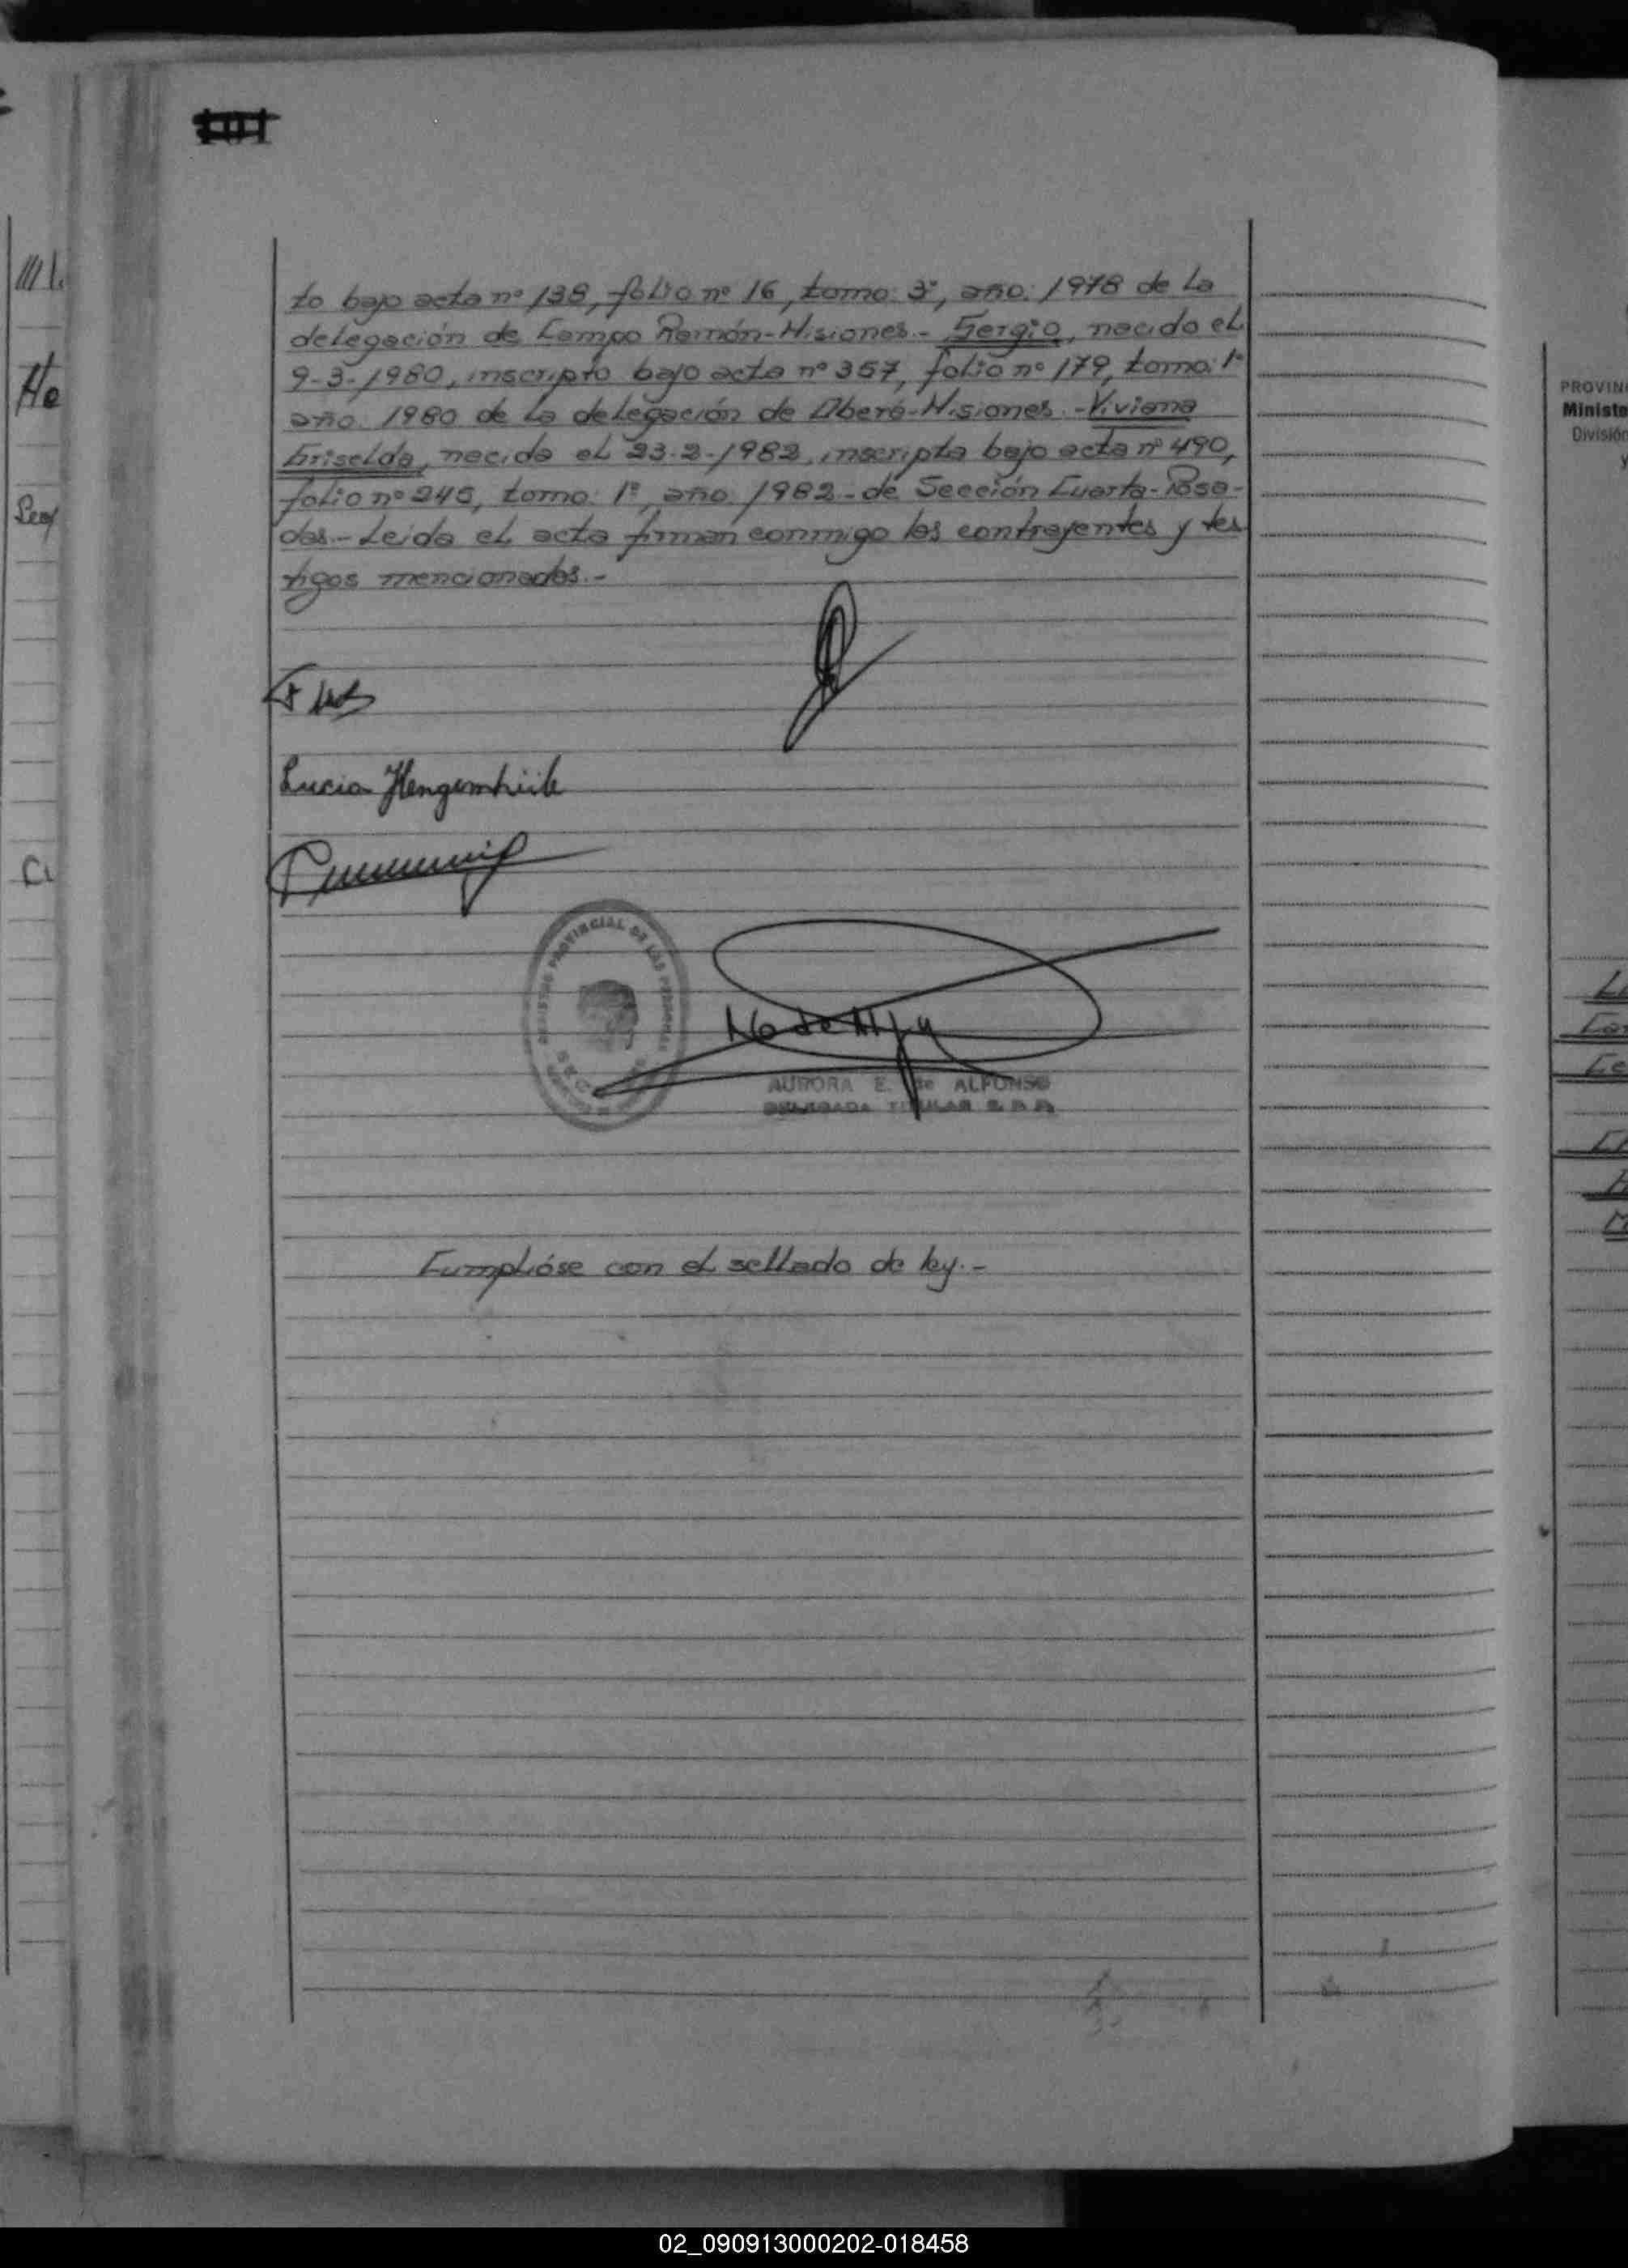 to bajo acta nº 138, folio nº 16, tomo: 3º, año: 1978 de la
delegación de Campo Ramón-Misiones.- Sergio, nacido el
9-3-1980, inscripto bajo acta nº 357, folio nº 179, tomo: 1º
año: 1980 de la delegación de Oberá-Misiones.-Viviana
Griselda, nacida el 23-2-1982, inscripta bajo acta nº 490,
folio nº 245, tomo: 1º, año: 1982-de Sección Cuarta-Posa-
das.- Leida el acta firman conmigo los contrayentes y tes
tigos mencionados.-
Lucia Hengemhüle
REGISTRO PROVINCIAL DE LAS PERSONAS
AURORA E. de ALFONSO
DELEGADA TITULAR
Cumplióse con el sellado de ley.-
PROVIN
Ministe
División
y
02_090913000202-018458